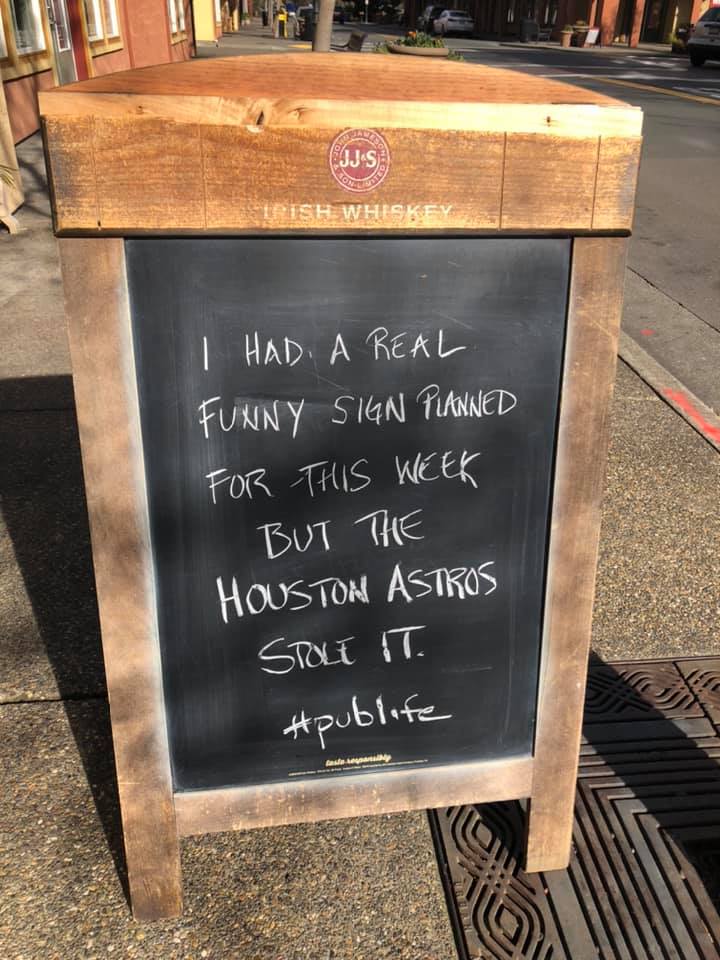 JOHN JAMESON
JJ&S
SON·LIMITED
IRISH WHISKEY
I HAD A REAL
FUNNY SIGN PLANNED
FOR THIS WEEK
BUT THE
HOUSTON ASTROS
STOLE IT.
#publife
taste responsibly